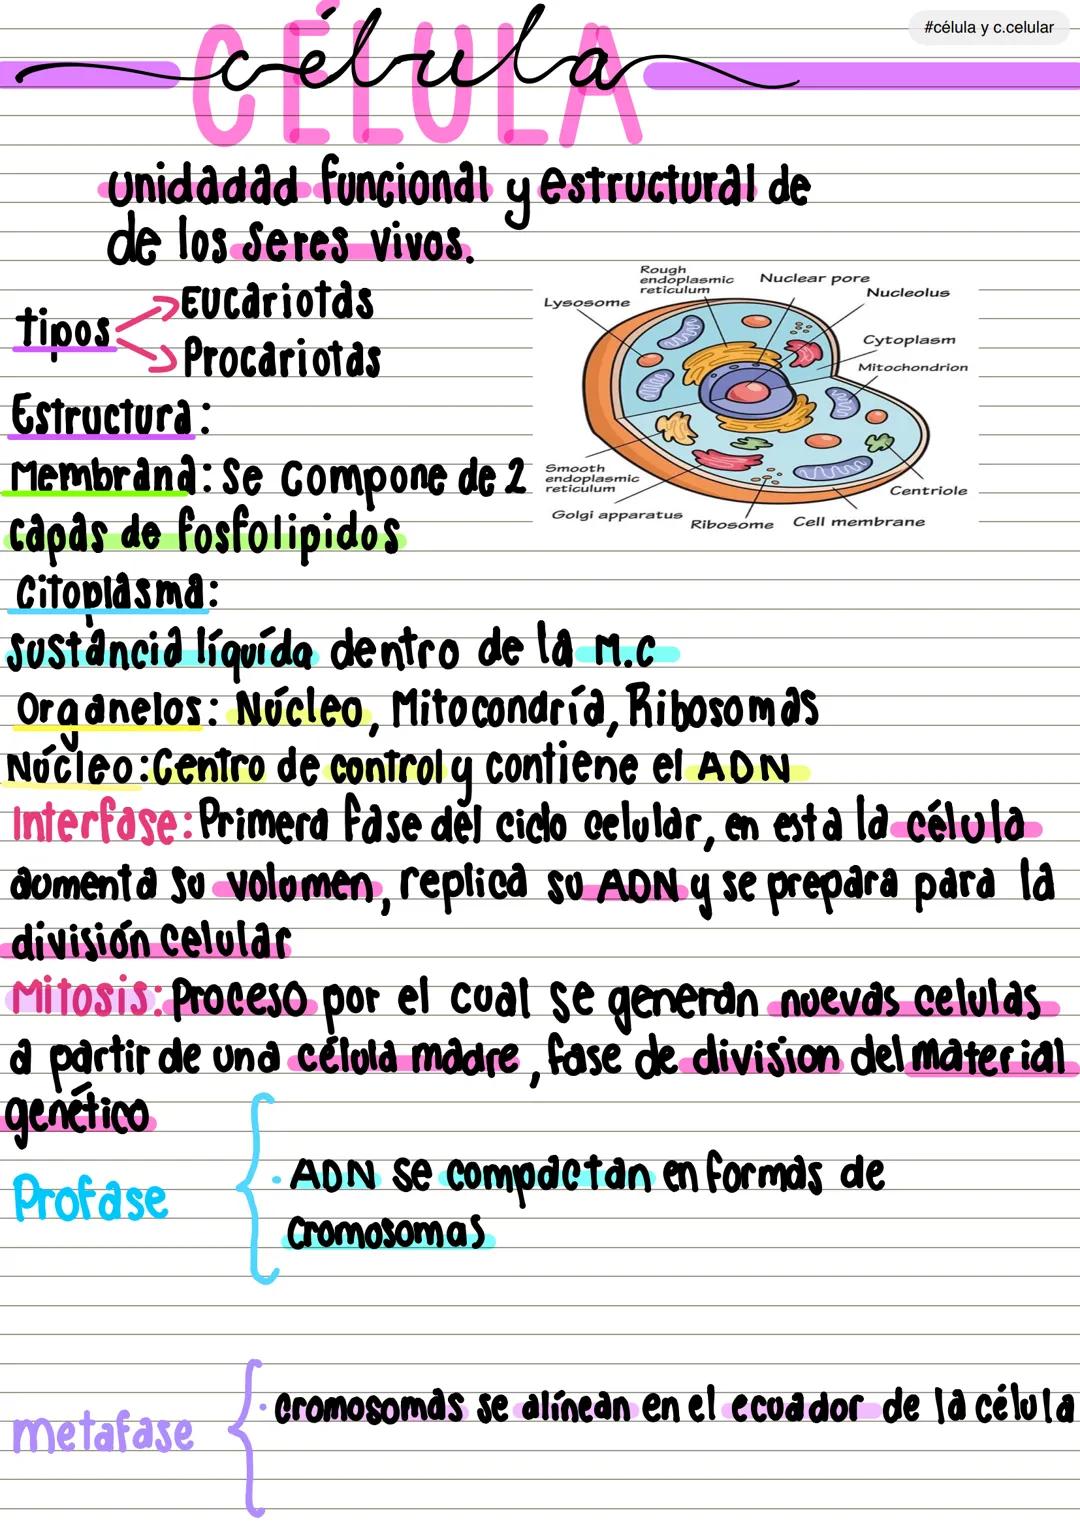 #célula y c.celular
CÉLULA
célula
unidadad funcional y estructural de
de los seres vivos.
tipos
Eucariotas
Procariotas
Rough
endoplasmic
reticulum
Nuclear pore
Nucleolus
Lysosome
Cytoplasm
Mitochondrion
Smooth
endoplasmic
reticulum
Centriole
Golgi apparatus
Ribosome
Cell membrane
Estructura:
Membrana: Se compone de 2
capas de fosfolipidos
Citoplasma:
sustancia líquída dentro de la M.C
Organelos: Núcleo, Mitocondría, Ribosomas
Núcleo: Centro de control y contiene el ADN
Interfase: Primera fase del ciclo celular, en esta la célula
aumenta su volumen, replica su ADN y se prepara para la
división celular
Mitosis: Proceso por el cual se generan nuevas celulas
a partir de una célula madre, fase de division del material
genético
Profase
· ADN se compactan en formas de
cromosomas
metafase
· cromosomas se alínean en el ecuador de la célula